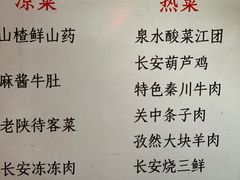 凉菜
山楂鲜山药
麻酱牛肚
老陕待客菜
长安冻冻肉
热菜
泉水酸菜江团
长安葫芦鸡
特色秦川牛肉
关中条子肉
孜然大块羊肉
长安烧三鲜